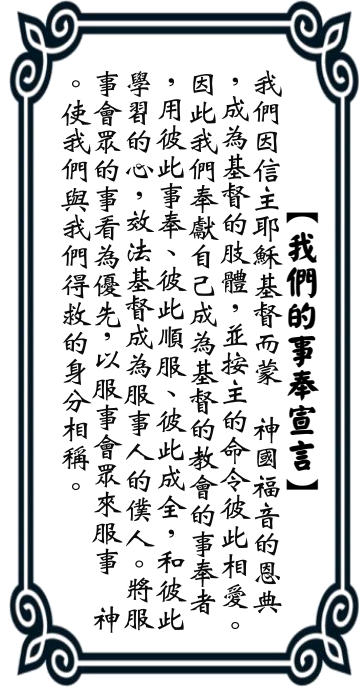 【我們的事奉宣言】
我們因信主耶穌基督而蒙　神國福音的恩典
，成為基督的肢體，並按主的命令彼此相愛。
因此我們奉獻自己成為基督的教會的事奉者
，用彼此事奉、彼此順服、彼此成全，和彼此
學習的心，效法基督成為服事人的僕人。將服
事會眾的事看為優先，以服事會眾來服事　神
。使我們與我們得救的身分相稱。